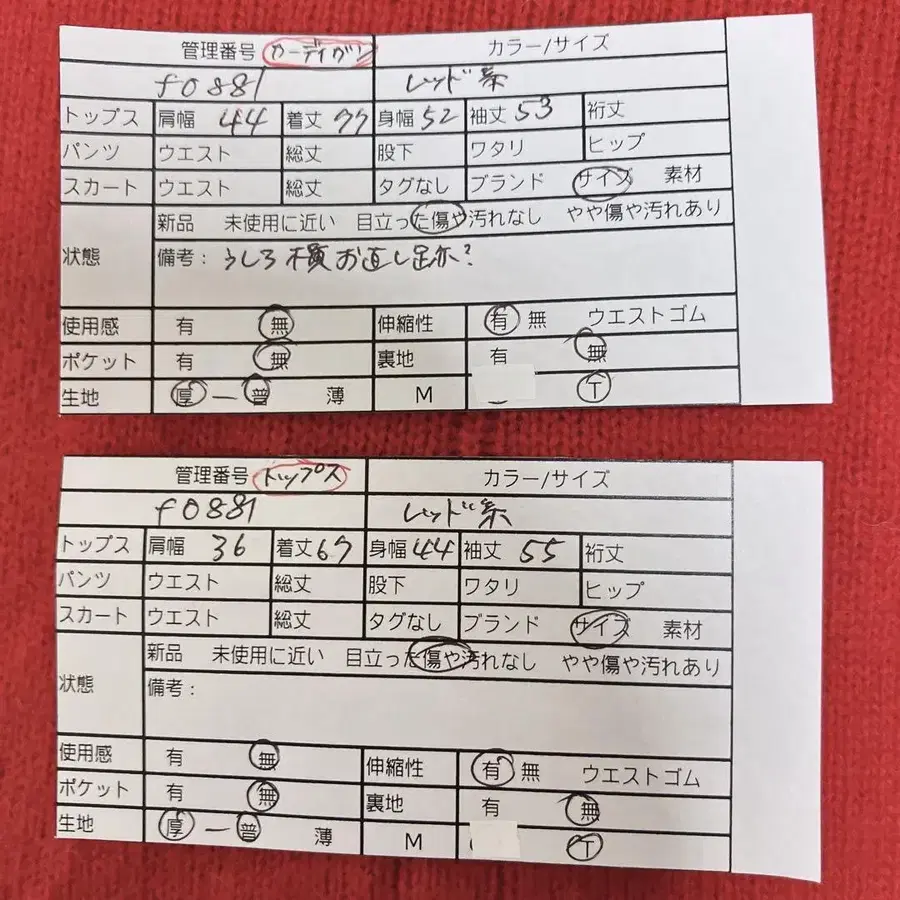 管理番号 カーディガン カラー/サイズ
f0881 レッド系
トップス 肩幅 44 着丈 77 身幅 52 袖丈 53 裄丈
パンツ ウエスト 総丈 股下 ワタリ ヒップ
スカート ウエスト 総丈 タグなし ブランド サイズ 素材
新品 未使用に近い 目立った傷や汚れなし やや傷や汚れあり
状態 備考: うしろ横お直し跡?
使用感 有 無 伸縮性 有 無 ウエストゴム
ポケット 有 無 裏地 有 無
生地 厚 ー 普 薄 M T
管理番号 トップス カラー/サイズ
f0881 レッド系
トップス 肩幅 36 着丈 67 身幅 44 袖丈 55 裄丈
パンツ ウエスト 総丈 股下 ワタリ ヒップ
スカート ウエスト 総丈 タグなし ブランド サイズ 素材
新品 未使用に近い 目立った傷や汚れなし やや傷や汚れあり
状態 備考:
使用感 有 無 伸縮性 有 無 ウエストゴム
ポケット 有 無 裏地 有 無
生地 厚 ー 普 薄 M T